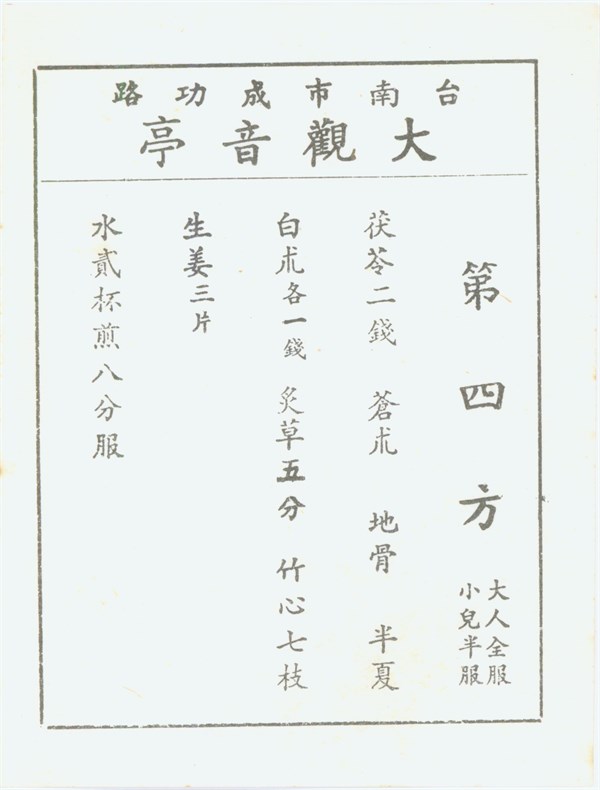 台南市成功路
大觀音亭
第四方 大人全服
小兒半服
茯苓二錢 蒼朮 地骨 半夏
白朮各一錢 炙草五分 竹心七枝
生姜三片
水貳杯煎八分服